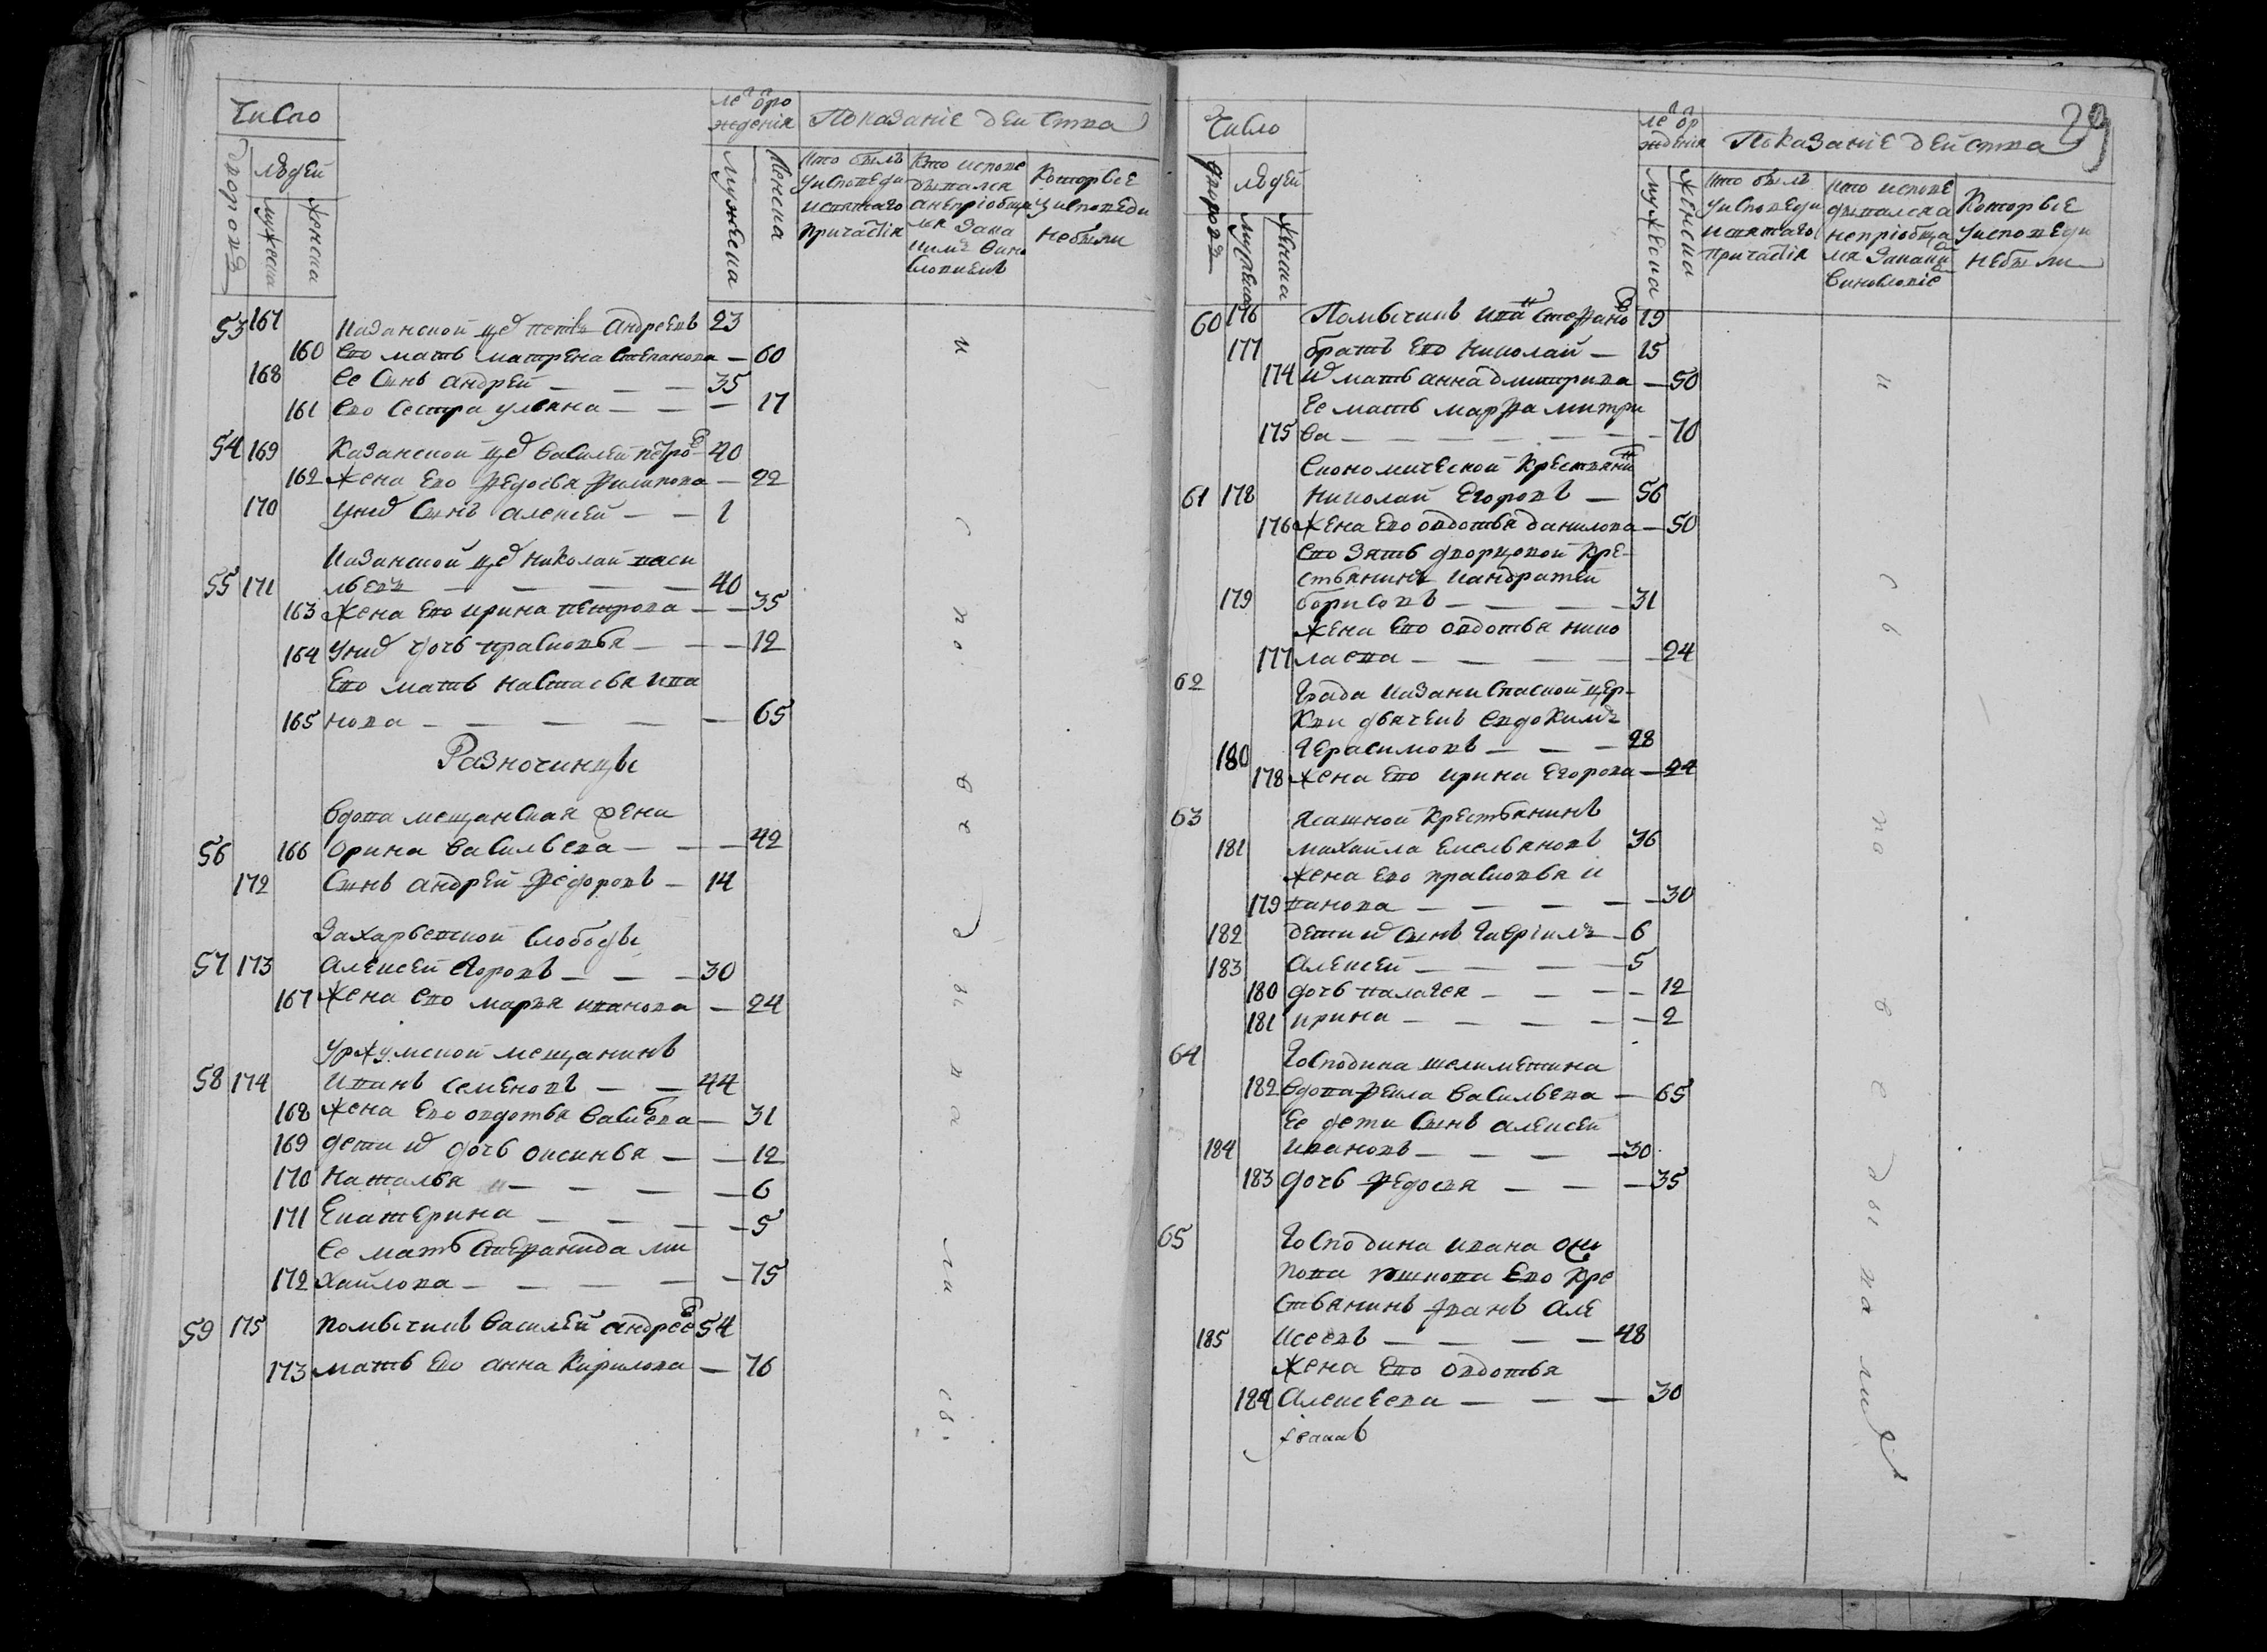 Число
дворовъ
людей
мужеска
женска
лета о рождения
мужеска
женска
Показание действа
кто былъ
у исповеди
и святаго
причастия
кто испове
дывался
а неприобща
лся
Которые
у исповеди
не были
53 167 Казанской цех Андреевъ 23
160 его мать матрена степанова — 60
168 Ее сынъ андрей — — — 35
161 его сестра ульяна — — — 17
54 169 Казанской цех василей петро 40
162 жена Его федосья филипова — 22
170 у них сынъ алексей — — 1
Казанской цех николай васи
55 171 льевъ — — — — 40
163 жена Его ирина петрова — — 35
164 у них дочь прасковья — — — 12
Его мать настасья ива
165 нова — — — — — 65
Разночинцы
вдова мещанская жена
56 166 Орина васильева — — — 42
172 сынъ андрей федоровъ — 14
Захарьевской слободы
57 173 алексей егоровъ — — — 30
167 жена его марья иванова — 24
Уржумской мещанинъ
58 174 иванъ семеновъ — — 44
168 жена Его авдотья васильева — 31
169 дети их дочь аксинья — — 12
170 наталья — — — — 6
171 Екатерина — — — — 5
Ее мать стефанида ми
172 хайлова — — — — — 75
59 175 василей андрее 54
173 мать Его анна кирилова — 76
и с п о в е д ы в а л и сь
29
Число
дворовъ
людей
мужеска
женска
лета о рождения
мужеска
женска
Показание действа
кто былъ
у исповеди
и святаго
причастия
кто испове
дывался а
неприобща
лся
Которые
у исповеди
не были
60 176 ива стефано 19
177 братъ Его николай — 15
174 их мать анна дмитриева — 50
Ее мать марфа митри
175 ва — — — — — — — 70
Економической крестьяни
61 178 николай Егоровъ — 56
176 жена Его овдотья данилова — 50
его зять дворцовой кре-
стьянинъ кандратей
179 борисовъ — — — 31
жена Его овдотья нико
177 лаева — — — — — 24
62 Града казани спаской цер-
кви дьячекъ евдокимъ
180 Герасимовъ — — — 28
178 жена Его ирина Егорова — 24
63 Ясашной крестьянинъ
181 михайла емельяновъ 36
жена Его прасковья и
179 ванова — — — — — 30
182 дети их сынъ гавриилъ — 6
183 алексей — — — — 5
180 дочь палагея — — — — 12
181 ирина — — — — — — 2
64 Господина
182 вдова фекла васильева — 65
Ее дети сынъ алексей
184 ивановъ — — — — 30
183 дочь федосья — — — 35
65 Господина ивана
Его кре
стьянинъ иванъ але
185 ксеевъ — — — — 48
жена Его овдотья
184 алексеева — — — 30
и с п о в е д ы в а л и